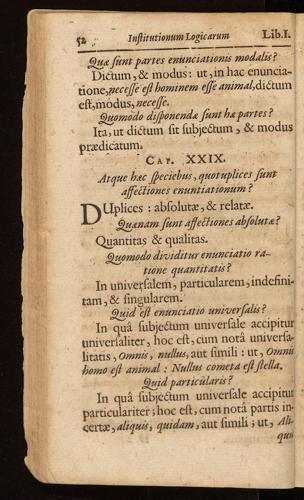 52 Institutionum Logicarum Lib.I.
Quæ sunt partes enunciationis modalis?
Dictum, & modus: ut, in hac enuncia-
tione, necesse est hominem esse animal, dictum
est, modus, necesse.
Quomodo disponendæ sunt hæ partes?
Ita, ut dictum sit subjectum, & modus
prædicatum.
CAP. XXIX.
Atque hæc speciebus, quotuplices sunt
affectiones enuntiationum?
DUplices: absolutæ, & relatæ.
Quænam sunt affectiones absolutæ?
Quantitas & qualitas.
Quomodo dividitur enunciatio ra-
tione quantitatis?
In universalem, particularem, indefini-
tam, & singularem.
Quid est enunciatio universalis?
In quâ subjectum universale accipitur
universaliter, hoc est, cum notâ universa-
litatis, omnis, nullus, aut simili: ut, Omnis
homo est animal: Nullus cometa est stella.
Quid particularis?
In quâ subjectum universale accipitur
particulariter; hoc est, cum notâ partis in-
certæ, aliquis, quidam, aut simili; ut, Ali-
quis